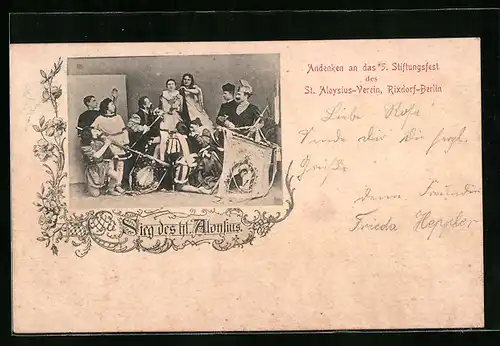 Andenken an das 5. Stiftungsfest
des
St. Aloysius-Verein, Rixdorf-Berlin
Sieg des hl. Aloysius.
Liebe
Sende Dir die herzl.
Grüße
Deine Freundin
Frieda Heppler